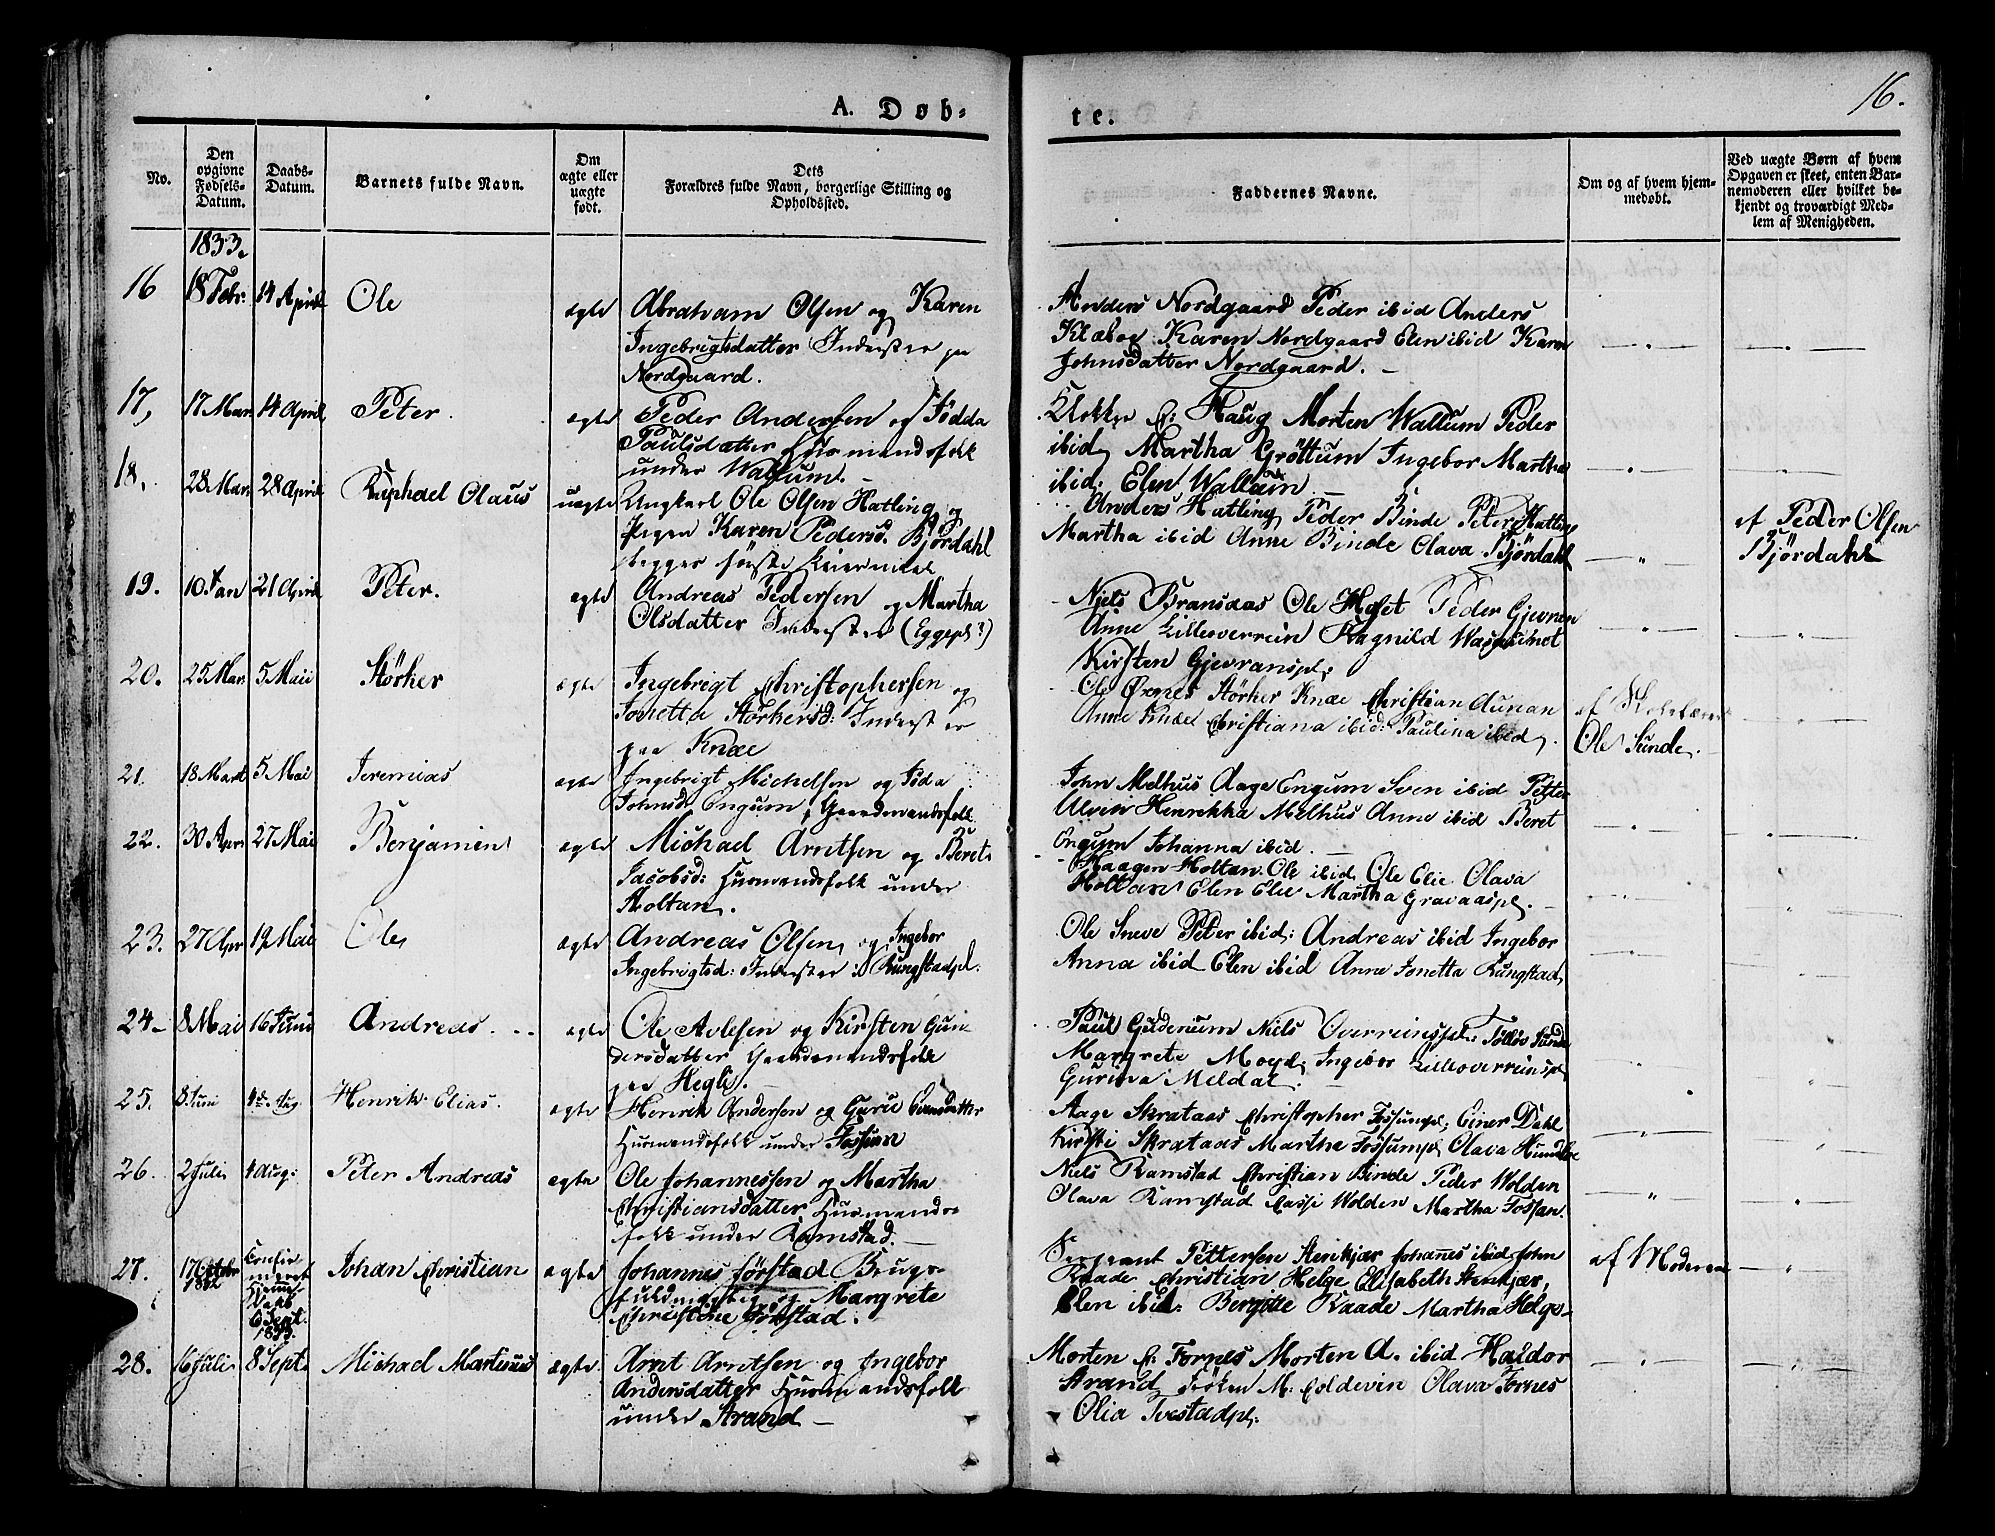 16.
A. Døb-
te.
No.
Den opgivne Fødsels-Datum.
Daabs-Datum.
Barnets fulde Navn.
Om ægte eller uægte født.
Dets Forældres fulde Navn, borgerlige Stilling og Opholdssted.
Faddernes Navne.
Om og af hvem hjem-medøbt.
Ved uægte Børn af hvem Opgaven er skeet, enten Bar-nemoderen eller hvilket be-kjendt og troværdigt Med-lem af Menigheden.
1833.
16 18 Febr. 14 April Ole ægte Abraham Olsen og Karen
Ingebrigtsdatter Inderster paa
Nordgaard.
Anders Nordgaard Peder ibid Anders
Klæbog Karen Nordgaard Elen ibid Karen
Johnsdatter Nordgaard. —
17, 17 Mar 14 April Peter. ægte Peder Andersen og
Paulsdatter Huusmandsfolk
under Wallum. —
Haug Morten Wallum Peder
ibid, Martha Gröttum Ingebor Martha
ibid: Elen Wallum
18. 28 Mar 28 April Raphael Olaus uægte Ungkarl Ole Olsen Hatling og
Pigen Karen Pedersd. Björdahl
begges første Leiermaal
Anders Hatling Peder Binde Peter Hatling
Martha ibid Anne Binde Olava Björdahl
af Peder Olsen
Björdahl
19. 10 Jan 21 April Peter. ægte Andreas Pedersen og Martha
Olsdatter Inderster (Eggepl:)
Niels Bransaas Ole Hoset Peder Gjevran
Anne Lilleoverrein Ragnild
Kirsten Gjevranspl:
20. 25 Mar 5 Maii Störker ægte Ingebrigt Christophersen og
Jonetta Störkersd: Inderster
paa Knæe
Ole Störker Knæe Christian Aunan
Anne Knæe Christiana ibid: Paulina ibid.
af Skolelærer
Ole Sunde.
21. 18 Mart 5 Mai Jeremias ægte Ingebrigt Michelsen og
Johnsd: Engum, Gaardmandsfolk
John Melhus Aage Engum Sven ibid Petter
Henrikka Melhus Anne ibid Beret
Engum Johanna ibid. —
22. 30 Apr 27 Mai Benjamin ægte Michael Arntsen og Beret
Jacobsd: Huusmandsfolk under
Holtan.
Haagen Holtan Ole ibid Ole Elie Olava
Holtan Elen Elie Martha Gravaaspl. —
23. 27 Apr 19 Mai Ole ægte Andreas Olsen og Ingebor
Ingebrigtsd: Inderster i Rungstadpl:
Ole Sneve Peter ibid: Andreas ibid Ingebor
Anna ibid Elen ibid Anne Jonetta Rungstad
24 8 Mai 16 Juni Andreas. ægte Ole og Kirsten Gun
dersdatter Gaardmandsfolk
paa Hegli. —
Paul Niels Overreinspl:
Margrete Moyd, Ingebor Lilleoverreinspl
Gurina Meldal.
25. 8 Juni 4 Aug Henrik Elias. ægte Henrik Andersen og Guru
Huusmandsfolk under Fossum
Aage Skrataas Christopher Fossumpl: Einer Dahl
Kirsti Skrataas Martha Fossumpl Olava
26. 2 Juli 4 Aug: Peter Andreas ægte Ole Johannessen og Martha
Christiansdatter Huusmands
folk under Ramstad. —
Niels Ramstad Christian Binde Peder Wolden
Olava Ramstad Wolden Martha Fossan.
27. 17 1832 Confir
meret
Hjemme-
daab
6 Sept.
1833. Johan Christian ægte Johannes Jörstad Brugs
fuldmægtig og Margrete
Christine Jörstad.
Sergeant Pettersen Stenkjær Johannes ibid John
Raade Christian Helge Elisabeth Stenkjær,
Elen ibid: Bergitte Raade Martha Helge
af Moderen
28. 16 Juli 8 Sept. Michael Martinus ægte Arnt Arntsen og Ingebor
Andersdatter Huusmandsfolk
under Strand —
Morten Fornes Morten A. ibid Haldor
Strand Frøken M. Coldevin Olava Fornes
Olia Tvestadpl: